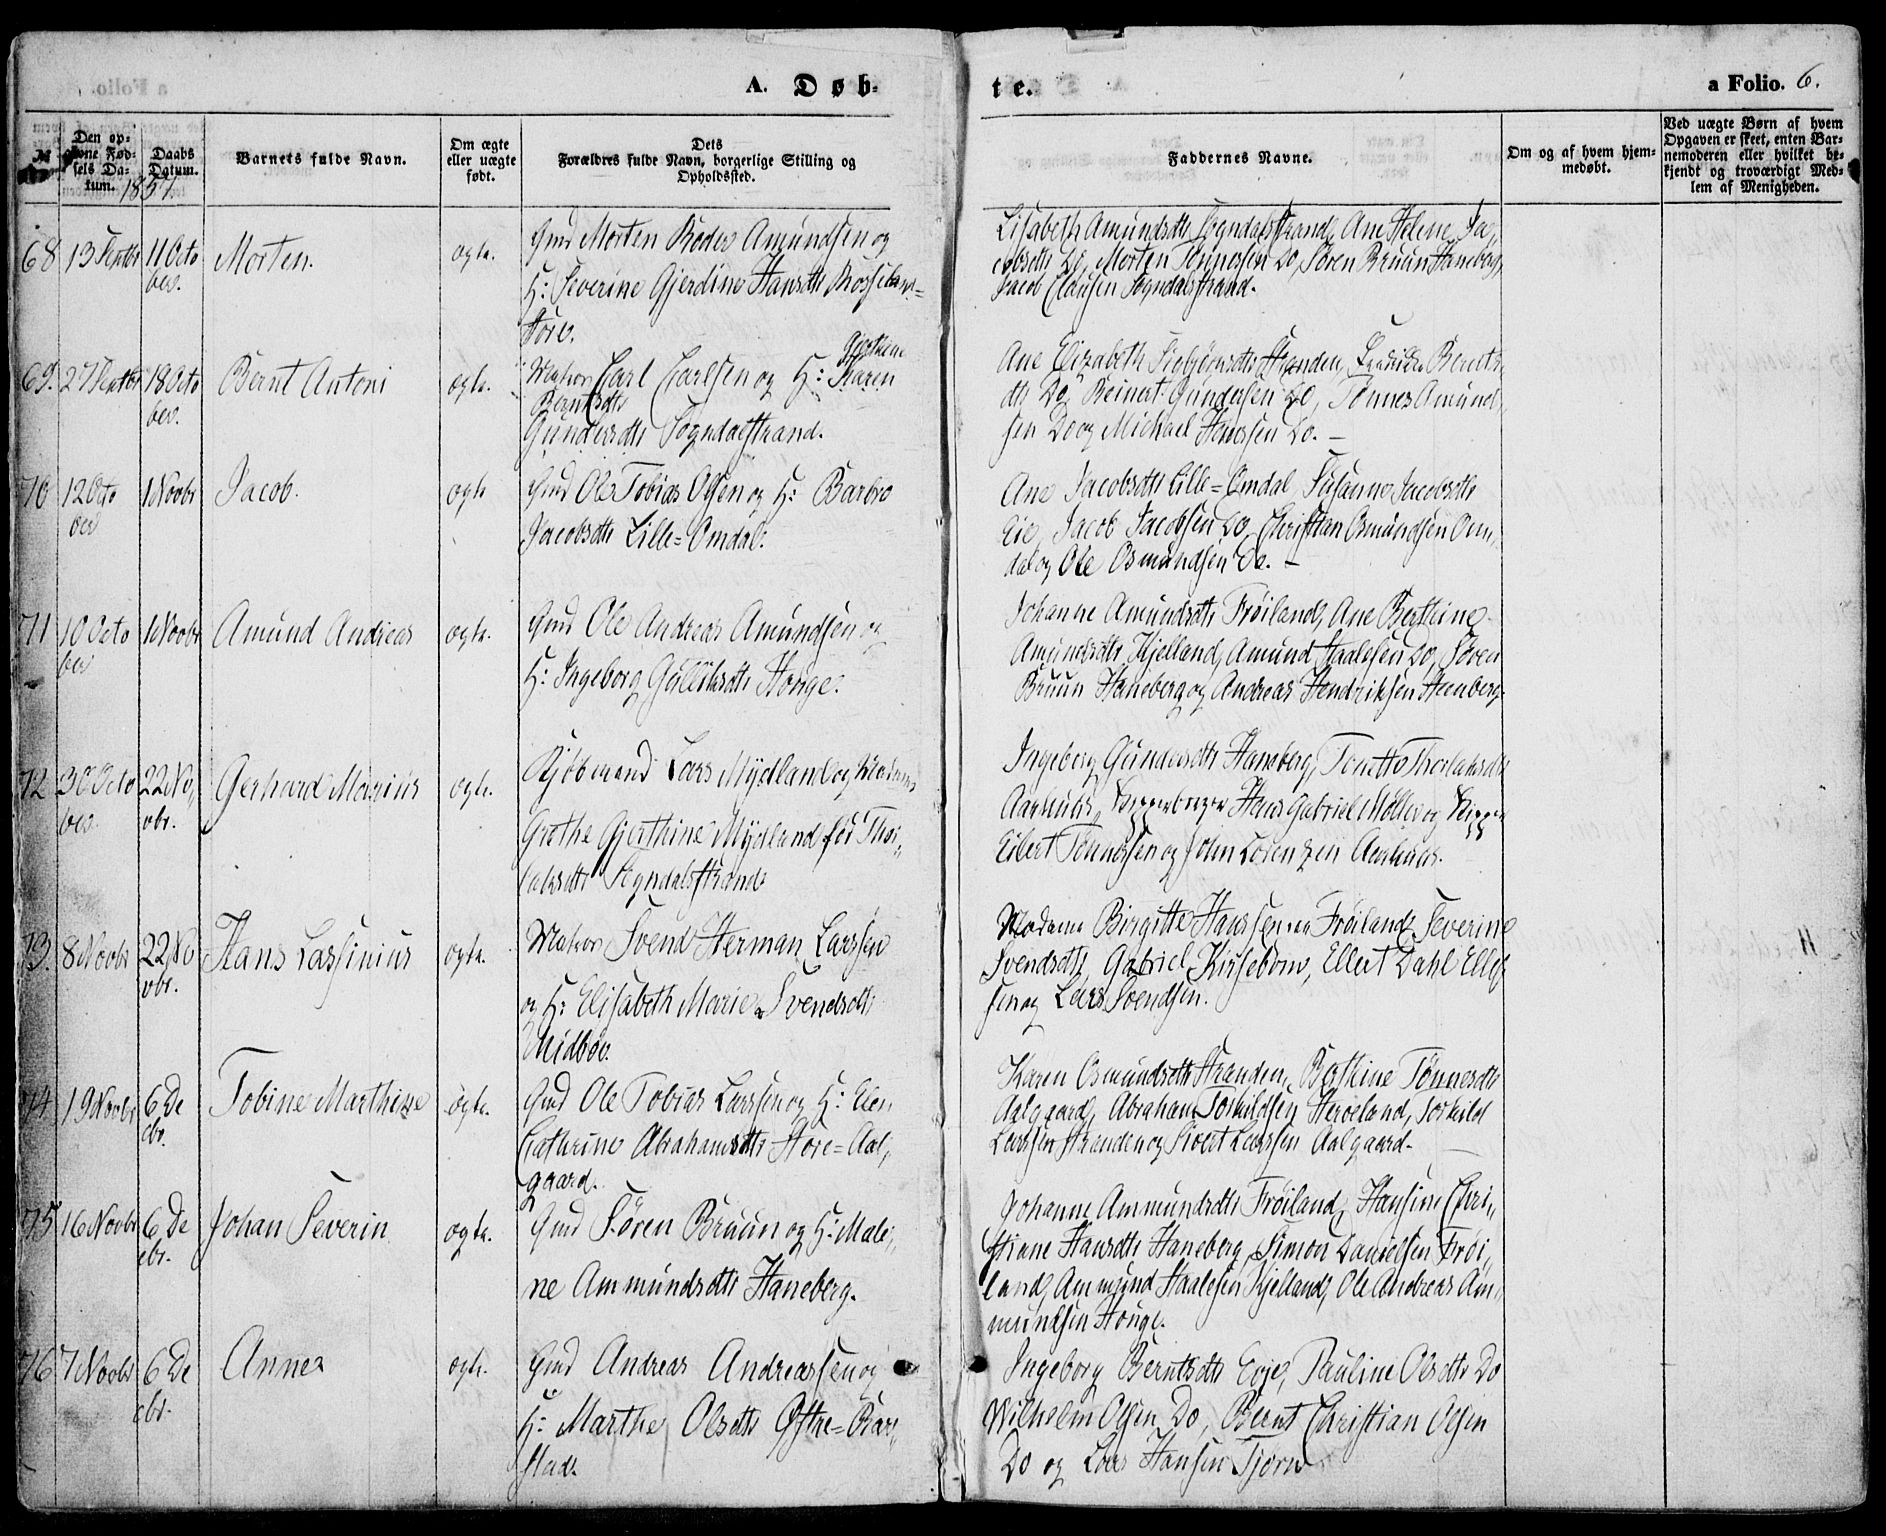 A. Døb- te. a Folio. 6.
№ Den opgivne Fødsels Datum. Daabs Datum. Barnets fulde Navn. Om ægte eller uægte født. Dets Forældres fulde Navn, borgerlige Stilling og Opholdssted. Faddernes Navne. Om og af hvem hjemmedøbt. Ved uægte Børn af hvem Opgaven er skeet, enten Barnemoderen eller hvilket bekjendt og troværdigt Medlem af Menigheden.
1857.
68 13 Septbr 11 Octo ber. Morten. ægte. Gmd Morten Amundsen og
H: Severine Gjerdine Hansdtr
Store.
Lisabeth Amundsdtr Sogndalstrand, Ane Helene Ja„
cobsdtr Do, Morten Tønnesen Do, Søren Bruun Haneberg,
Jacob Clausen Sogndalstrand.
69. 27 Septbr 18 Octo ber. Bernt Antoni ægte. Matros Carl Carlsen og H: Karen
Berntsdtr
Gundersdtr Sogndalstrand.
Ane Elizabeth Stranden, Berntsˮ
dtr Do, Reinert Gundersen Do, Tønnes Amund„
sen Do og Michael Hansen Do. —
70 12 Octo ber 1 Novbr Jacob. ægte Gmd Ole Tobias Olsen og H: Barbro
Jacobsdtr Lille=Omdal.
Ane Jacobsdtr Lille=Omdal, Susanne Jacobsdtr
Eie, Jacob Jacobsen Do, Christian Osmundsen Om„
dal og Ole Osmundsen Do. —
71 10 Octo ber 1 Novbr Amund Andreas ægte. Gmd Ole Andreas Amundsen og
H: Ingeborg Gulliksdtr Houge.
Johanne Amundsdtr Frøiland, Ane Bertine
Amundsdtr Kjelland, Amund Staalesen Do, Søren
Bruun Haneberg og Andreas Hendriksen Steenberg
72 30 Octo ber. 22 No„ vbr. Gerhard Marius ægte. Kjøbmand Lars Mydland og Madame
Grethe Gjerthine Mydland før Thor„
laksdtr Sogndalsstrand.
Ingeborg Gundersdtr Haneberg, Tonette Thorlaksdtr
Aarhuus, Hans Gabriel Møller og
Eilert Tønnessen og John Lorenzen Aarhuus.
73. 8 Novbr 22 No vbr. Hans Lassinius ægte. Matros Svend Herman Larssen
og H: Elisabeth Marie Svendsdtr
Midbøe.
Madame Birgitte Hanssen Frøiland, Severine
Svendsdtr, Gabriel Kirsebom, Ellert Dahl Ellef„
sen og Lars Svendsen.
74. 19 Novbr 6 De cbr. Tobine Marthine ægte. Gmd Ole Tobias Larssen og H: Elen
Cathrine Abrahamsdtr Store=Aal„
gaard.
Karen Osmundsdtr Stranden, Bertine Tønnesdtr
Aalgaard, Abraham Torkildsen Herveland, Torkild
Larssen Stranden og Sivert Larssen Aalgaard.
75 16 Novbr 6 De cbr. Johan Severin ægte. Gmd Søren Bruun og H: Male„
ne Ammundsdtr Haneberg.
Johanne Ammundsdtr Frøiland, Hansine Chri„
stiane Hansdtr Haneberg, Simon Danielsen Frøi„
land, Ammund Staalesen Kjelland, Ole Andreas Am„
mundsen Houge.
76 7 Novbr 6 De cbr. Anne ægte. Gmd Andreas Andreassen og
H: Marthe Olsdtr Østre=Bar„
stad.
Ingeborg Berntsdtr Evje, Pauline Olsdtr Do
Wilhelm Olsen Do, Bernt Christian Olsen
Do og Lars Hansen Tjørn